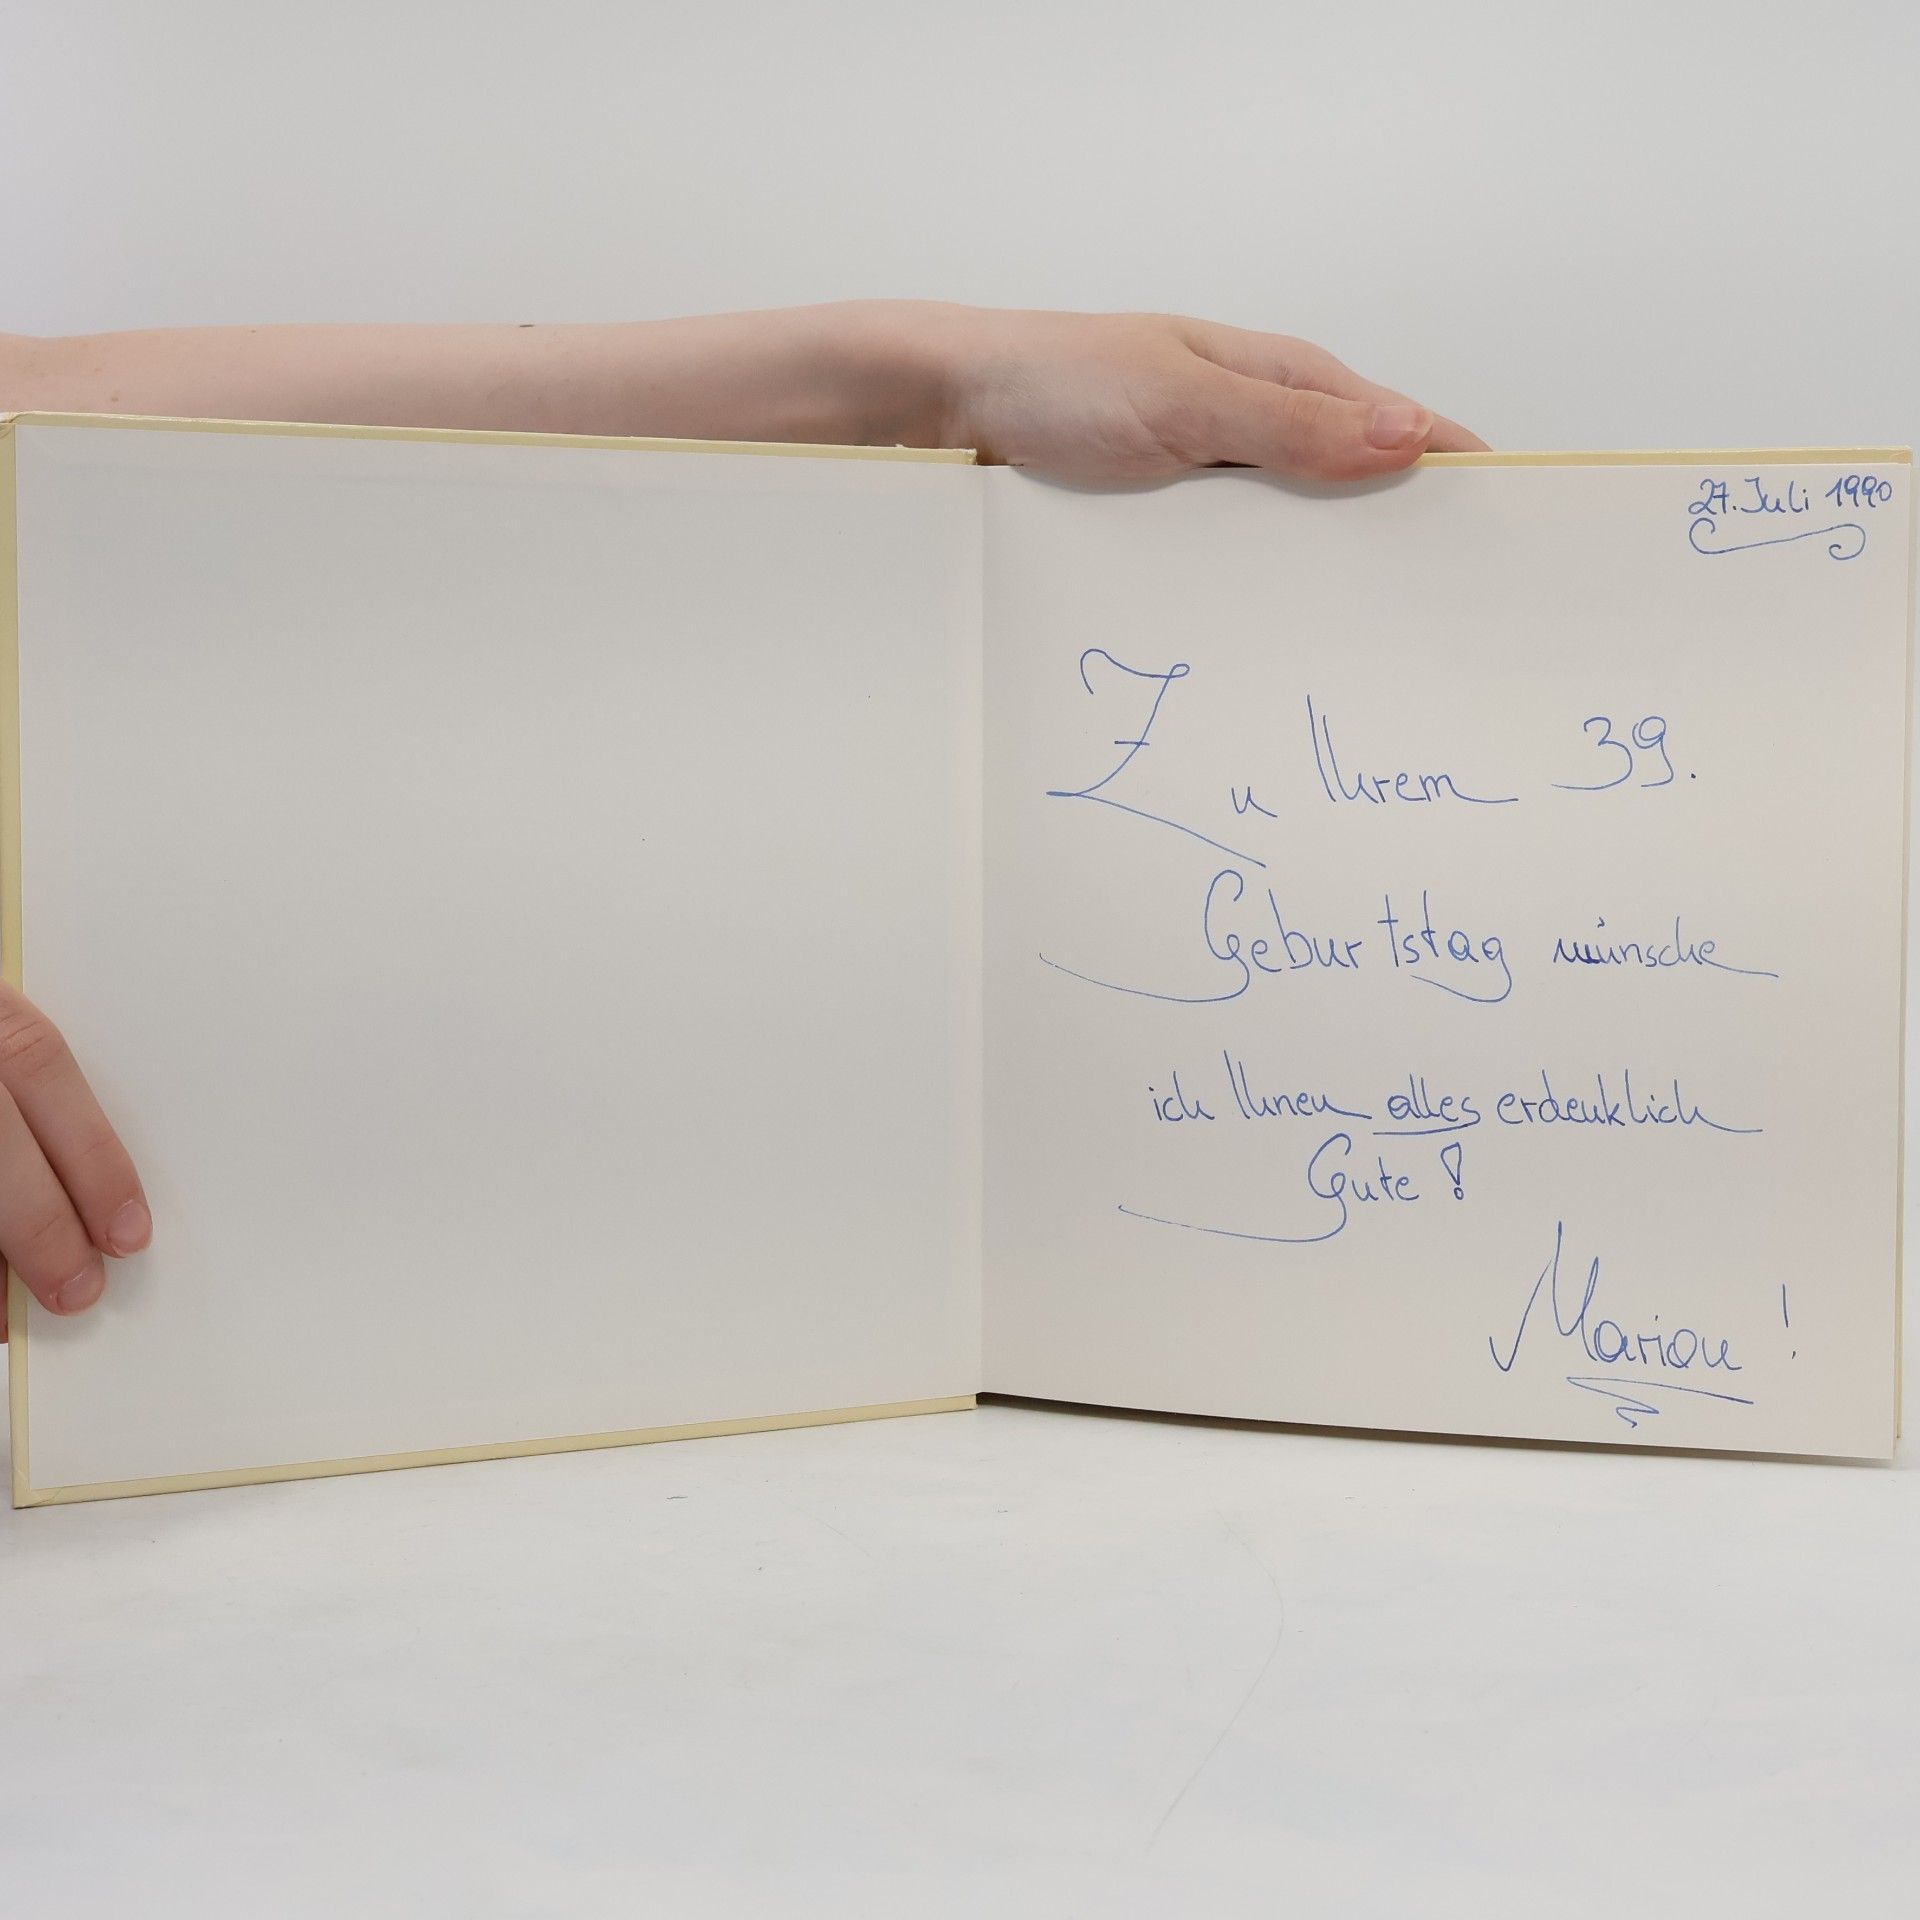 27. Juli 1990
Zu Ihrem 39.
Geburtstag wünsche
ich Ihnen alles erdenklich
Gute!
Marion!